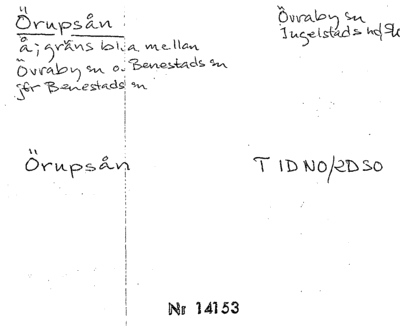 Örupsån
Övraby sn
Ingelstads hd/Sk
å; gräns bl.a. mellan
Övraby sn o. Benestads sn
jfr Benestads sn
Örupsån
T 1D NO/2D SO
Nr 14153